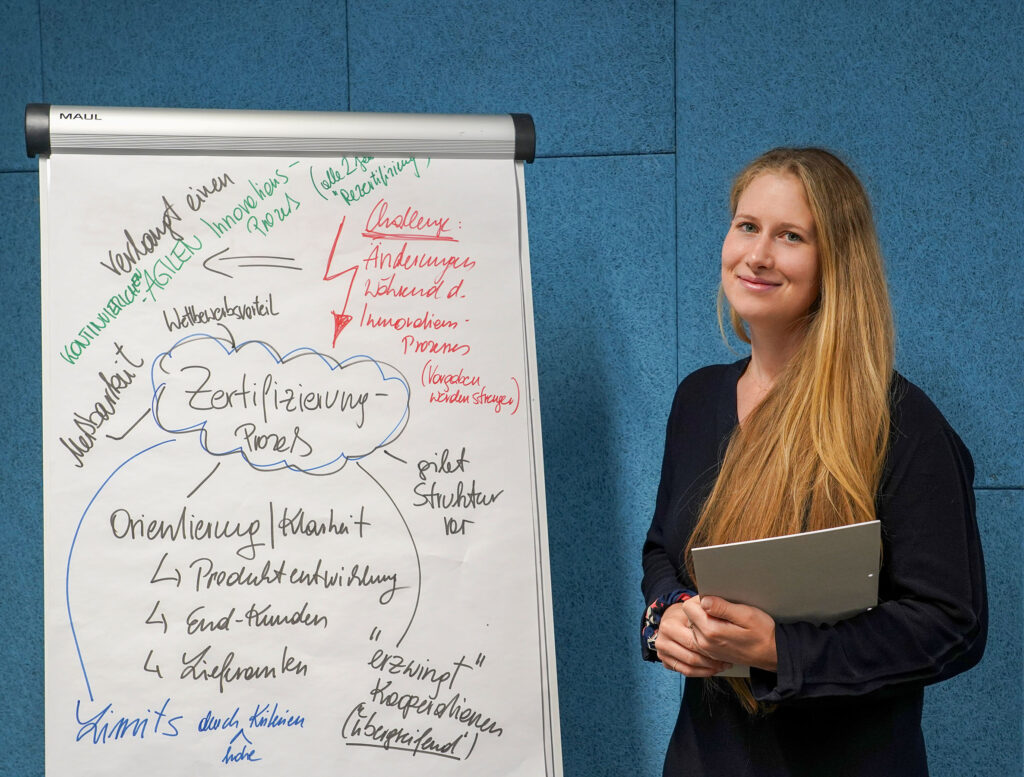 MAUL
verlangt einen
KONTINUIERLICHEN
-AGILEN Innovations-
Prozeß
(alle 2
"Rezertifizierung")
Challenge:
Änderungen
während d.
Innovations-
Prozesses
(Vorgaben
werden strenger)
Wettbewerbsvorteil
Messbarkeit
Zertifizierung-
Prozeß
gibt
Struktur
vor
Orientierung/Klarheit
↳ Produktentwicklung
↳ End-Kunden
↳ Lieferanten
"erzwingt"
Kooperationen
(übergreifend")
Limits durch Kriterien
hohe